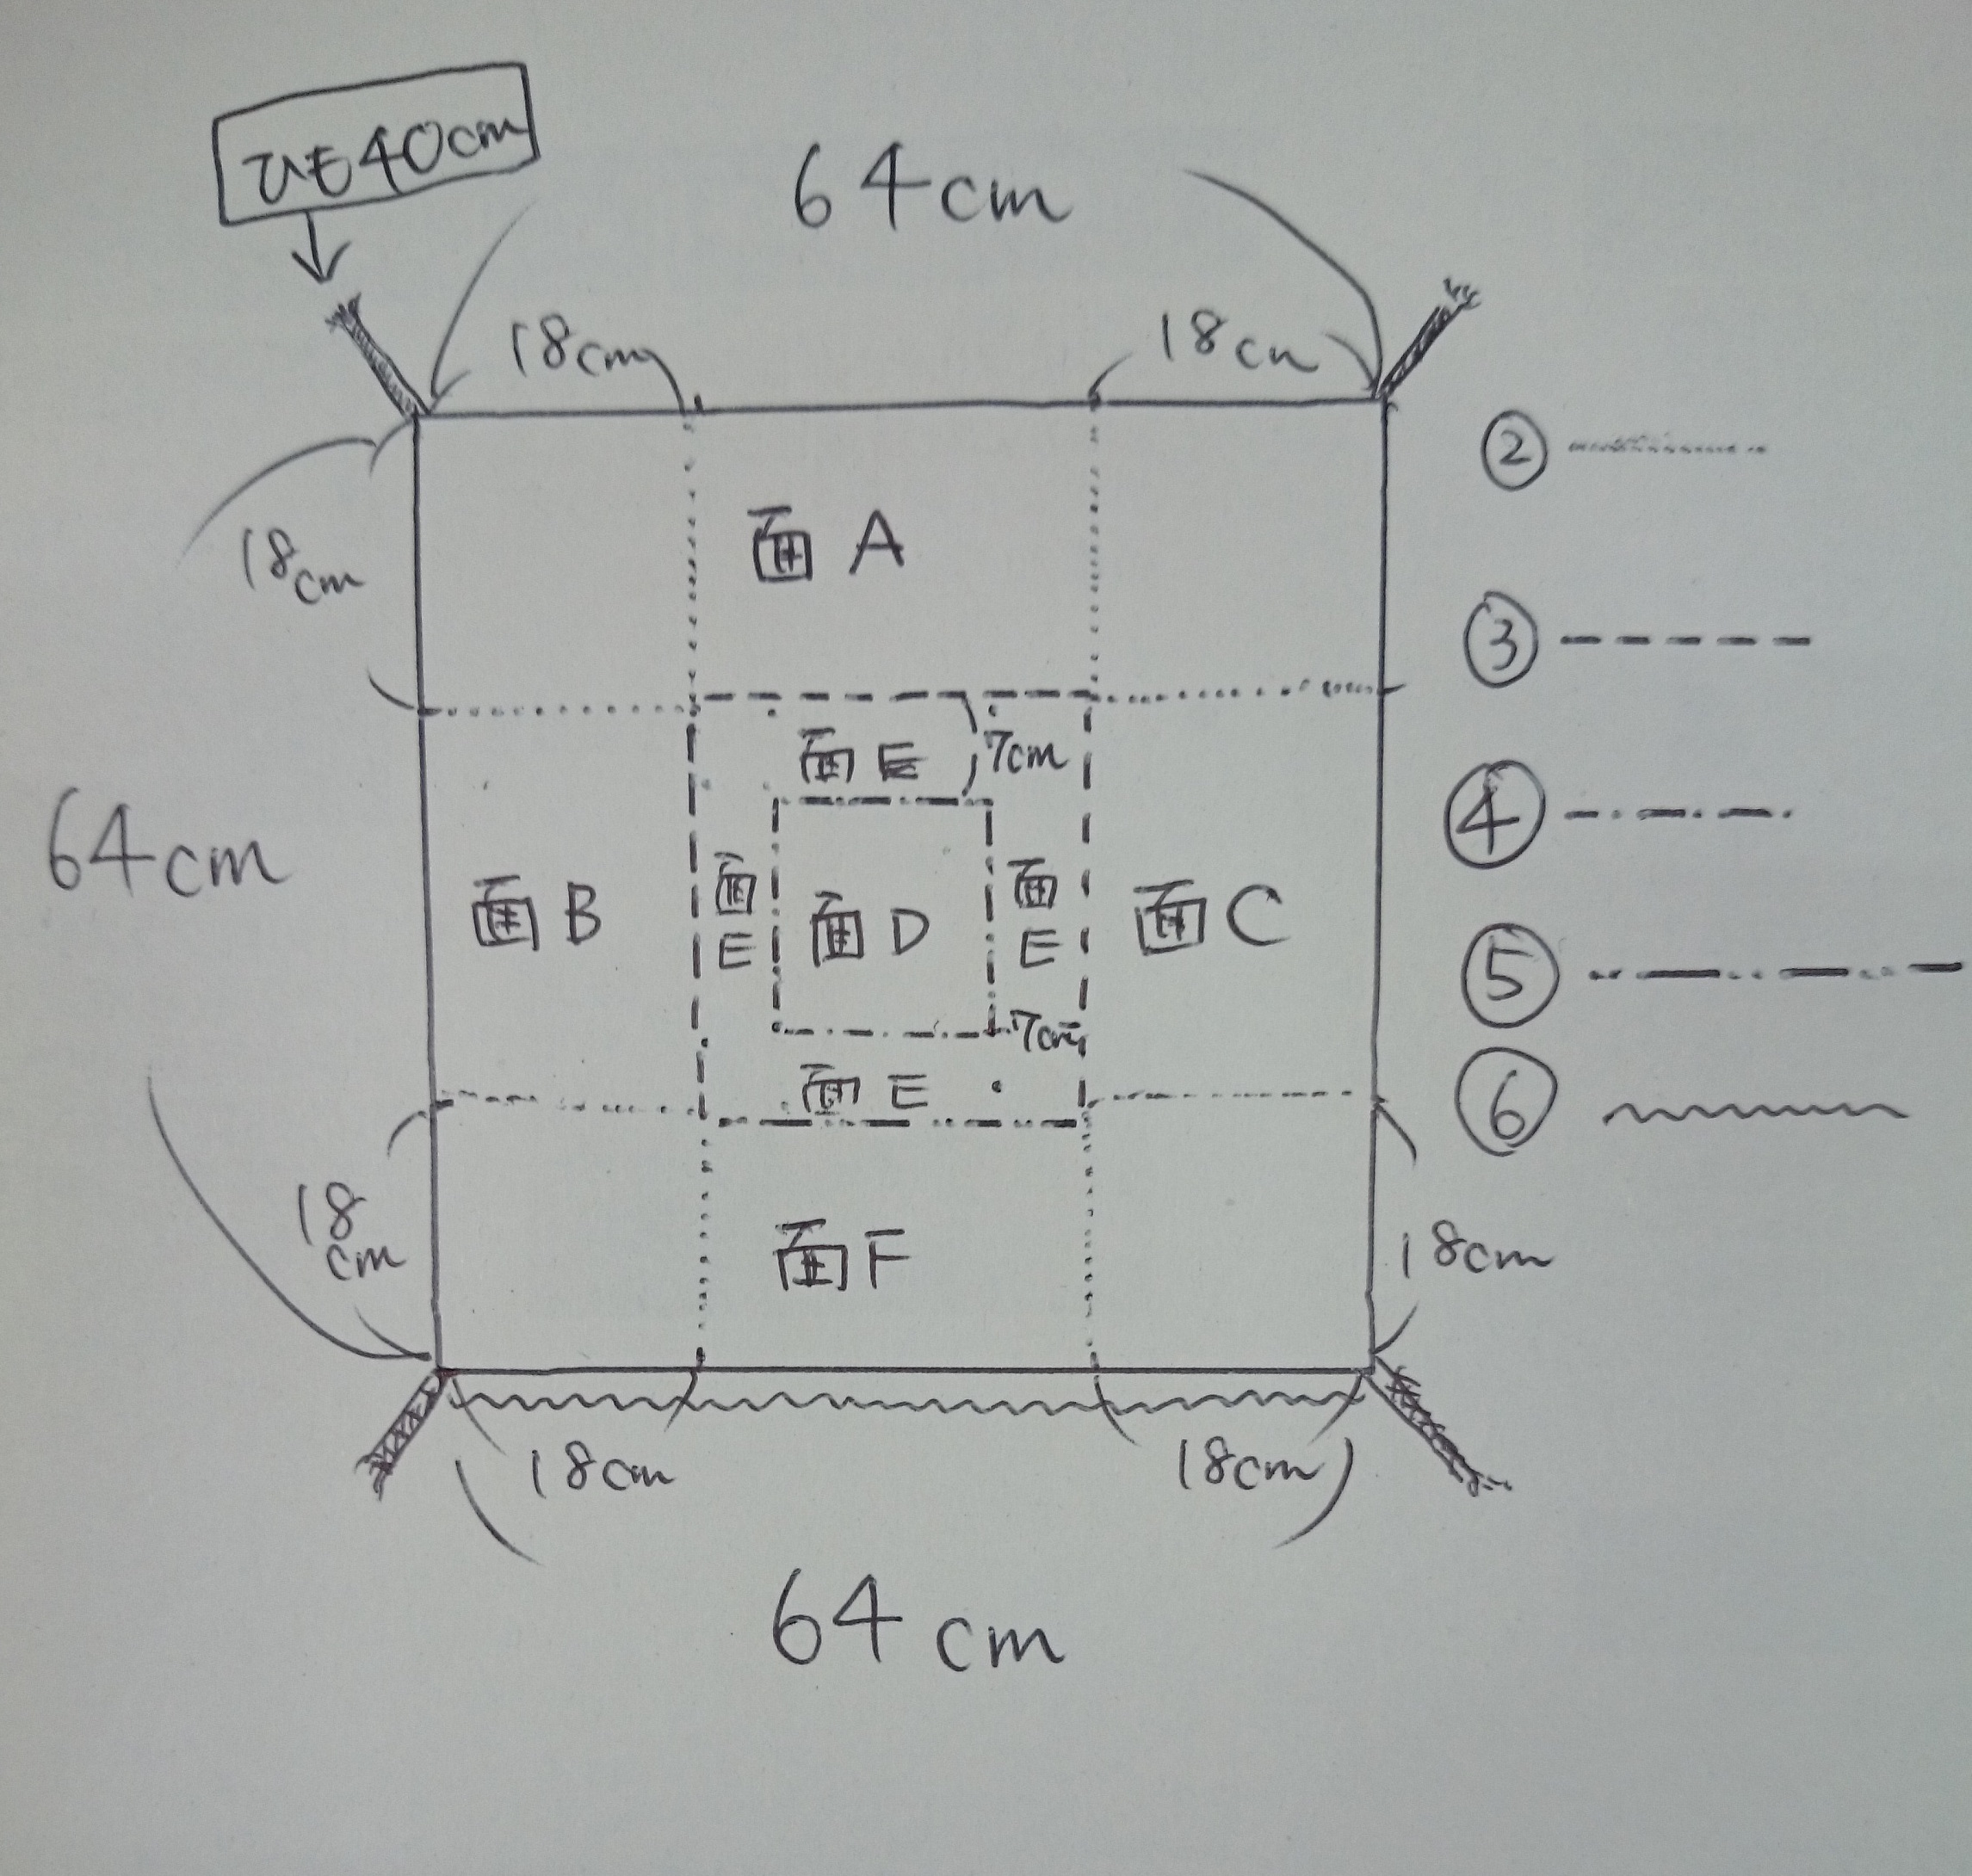 ひも40cm
64cm
18cm
18cm
18cm
②
面A
③
面E
7cm
④
64cm
面B
面E
面D
面E
面C
⑤
7cm
面E
⑥
18cm
面F
18cm
18cm
18cm
64cm